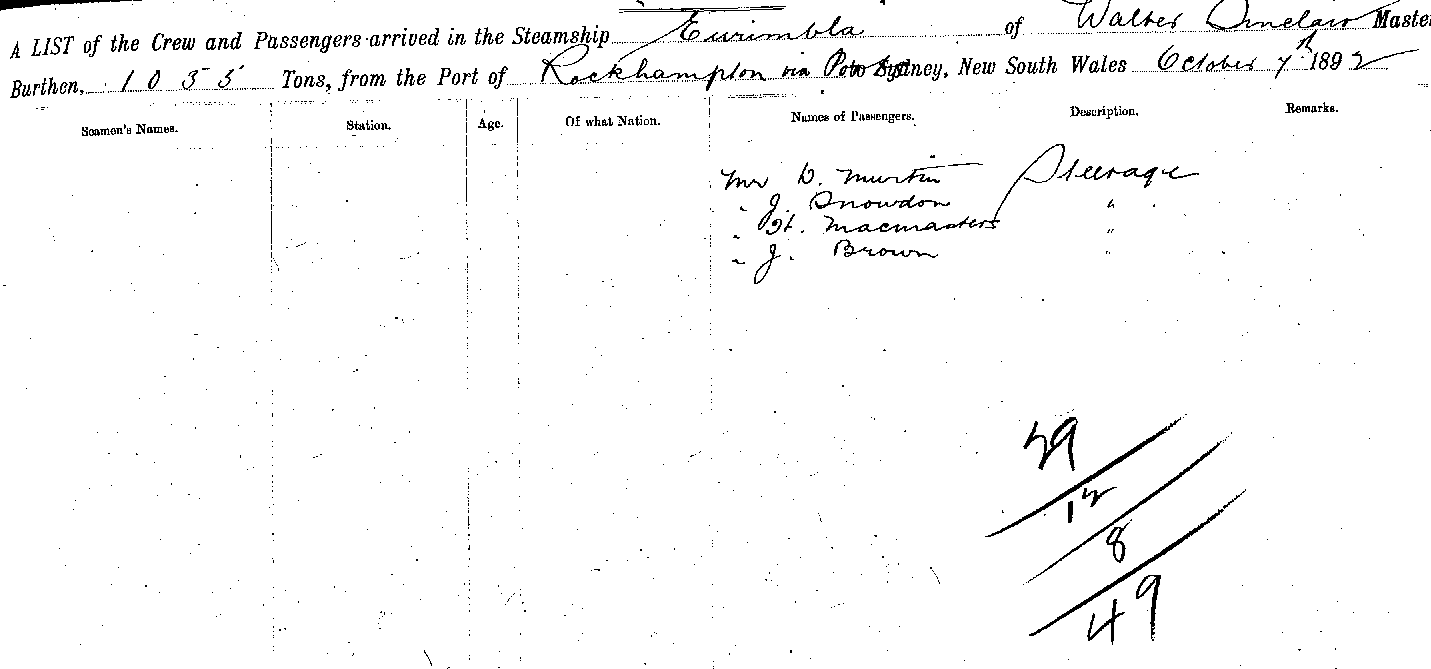 A LIST of the Crew and Passengers arrived in the Steamship Eurimbla of Walter Sinclair Maste
Burthen, 1035 Tons, from the Port of Rockhampton via Sydney, New South Wales October 7th 1892
Seamen's Names. Station. Age. Of what Nation. Names of Passengers. Description. Remarks.
Mr D. Murtin Steerage
" J. Snowdon "
" Macmasters "
" J. Brown "
29
12
8
49